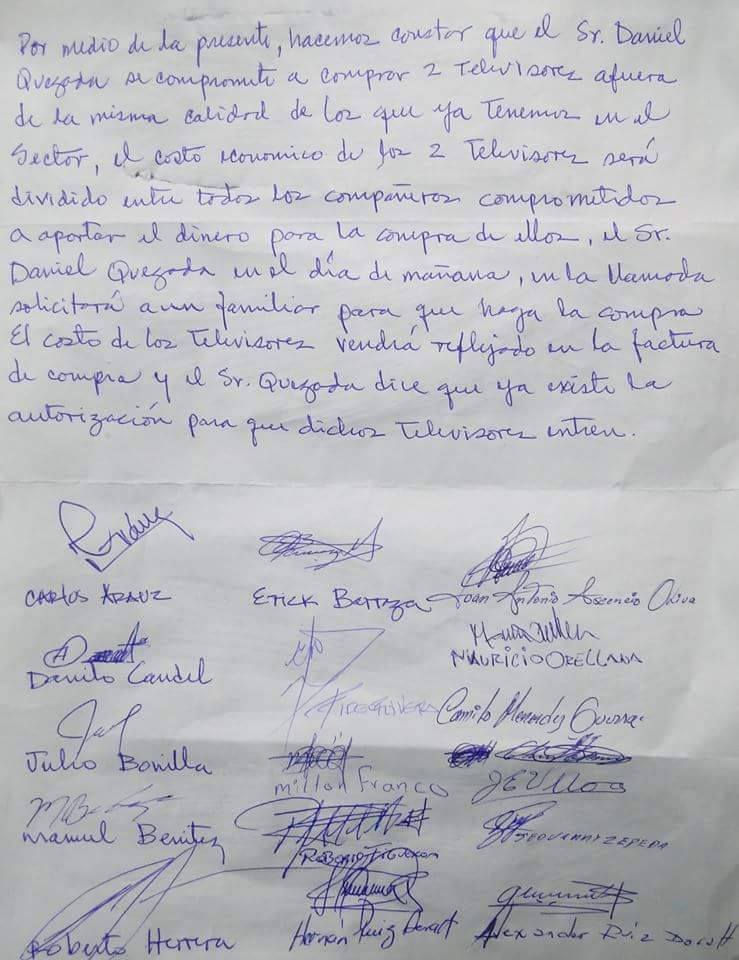 Por medio de la presente, hacemos constar que el Sr. Daniel
Quezada se compromete a comprar 2 Televisores afuera
de la misma calidad de los que ya tenemos en el
Sector, el costo economico de los 2 Televisores será
dividido entre todos los compañeros comprometidos
a aportar el dinero para la compra de ellos, el Sr.
Daniel Quezada en el día de mañana, en la llamada
solicitará a un familiar para que haga la compra
El costo de los Televisores vendrá reflejado en la factura
de compra y el Sr. Quezada dice que ya existe la
autorización para que dichos Televisores entren.
CARLOS ARAUZ
Erick
Juan Antonio Ascencio
Danilo Candel
MAURICIO ORELLANA
Camilo Menendez Guerra
Julio Bonilla
Millon Franco
Manuel Benitez
ROBERTO FIGUEROA
ZEPEDA
Roberto Herrera
Hernán Ruiz
Alexander Ruiz